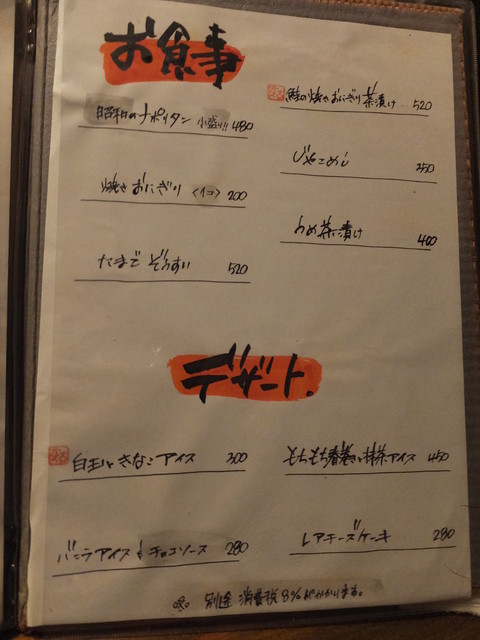 お食事
昭和のナポリタン 小盛り!! 480
焼きおにぎり 〈1コ〉 200
たまごぞうすい 520
鮭の焼きおにぎり茶漬け 520
じゃこめし 350
うめ茶漬け 400
デザート.
白玉ときなこアイス 300
バニラアイス チョコソース 280
もちもち春巻と抹茶アイス 450
レアチーズケーキ 280
別途 消費税8%がかかります。